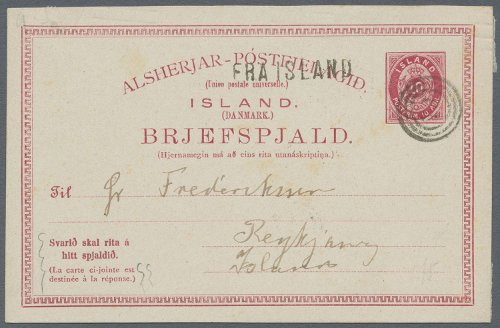 ALSHERJAR-PÓSTFJELAGID.
(Union postale universelle.)
FRA ISLAND
ISLAND.
(DANMARK.)
BRJEFSPJALD.
(Hjernamegin má að eins rita utanáskriptina.)
ISLAND
Til
Hr Frederiksen
Reykjavig
Island
Svarið skal rita á
hitt spjaldið.
(La carte ci-jointe est
destinée à la réponse.)